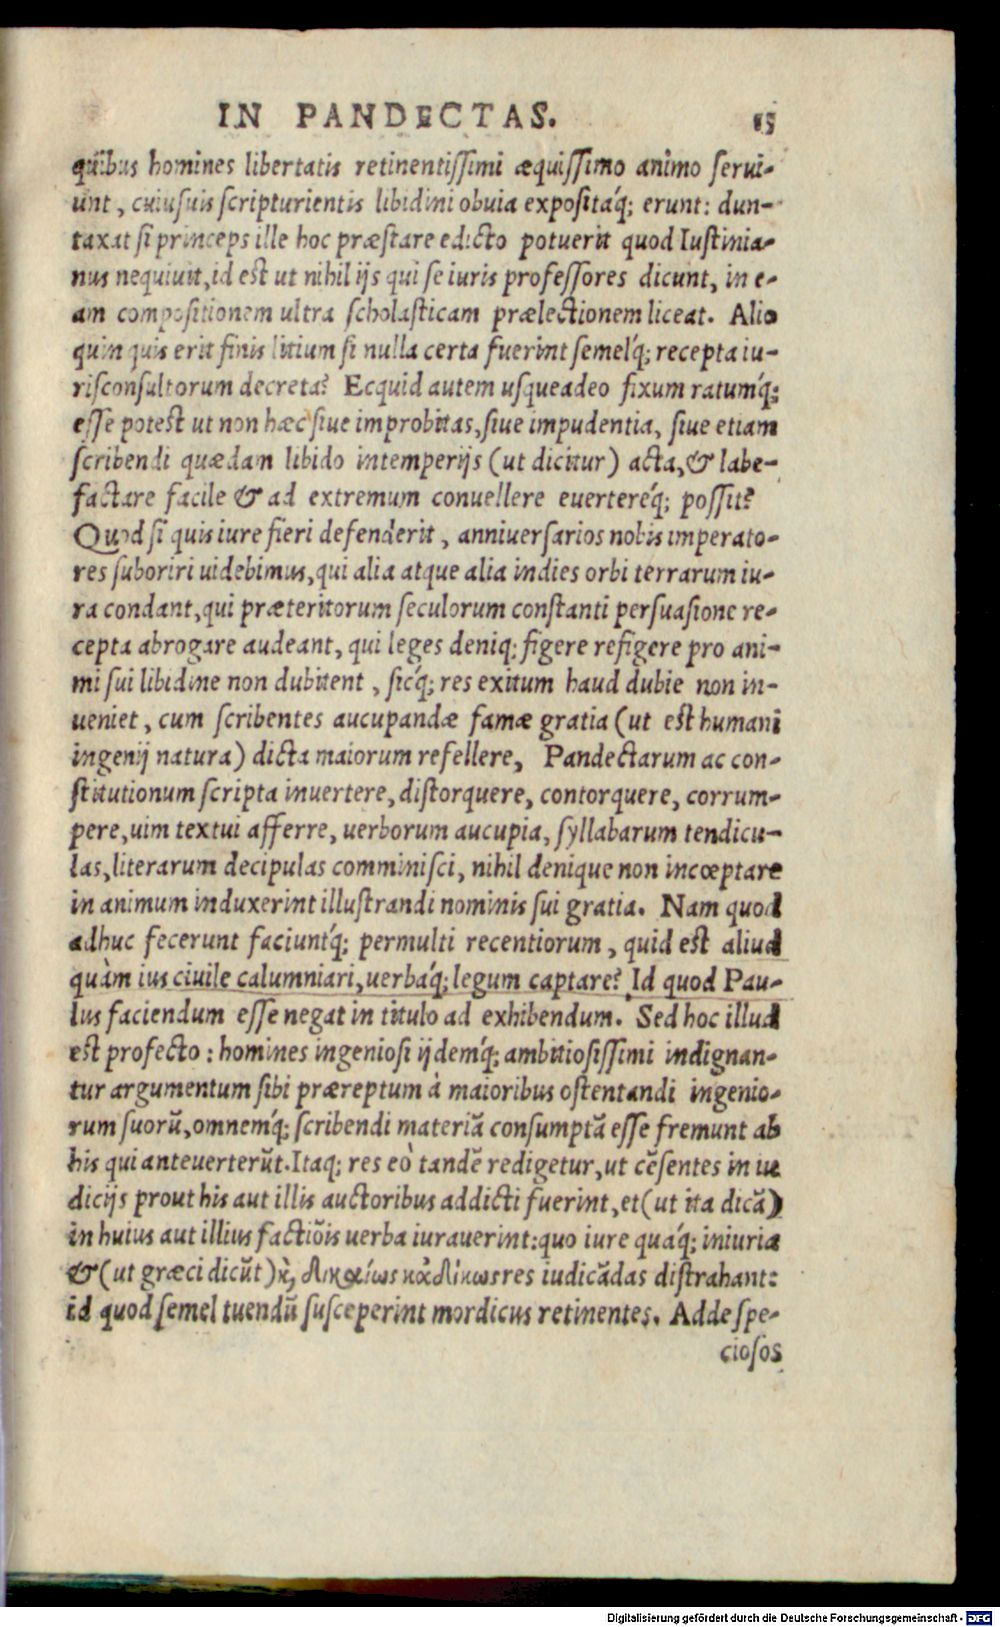 IN PANDECTAS. 15
quibus homines libertatis retinentissimi æquissimo animo serui-
unt, cuiusuis scripturientis libidini obuia expositáq; erunt: dun-
taxat si princeps ille hoc præstare edicto potuerit quod Iustinia-
nus nequiuit, id est ut nihil ijs qui se iuris professores dicunt, in e-
am compositionem ultra scholasticam prælectionem liceat. Alio
quin quis erit finis litium si nulla certa fuerint semelq́; recepta iu-
risconsultorum decreta? Ecquid autem usqueadeo fixum ratumq́;
esse potest ut non hæc siue improbitas, siue impudentia, siue etiam
scribendi quædam libido intemperijs (ut dicitur) acta, & labe-
factare facile & ad extremum conuellere euertereq́; possit?
Quod si quis iure fieri defenderit, anniuersarios nobis imperato-
res suboriri uidebimus, qui alia atque alia indies orbi terrarum iu-
ra condant, qui præteritorum seculorum constanti persuasione re-
cepta abrogare audeant, qui leges deniq; figere refigere pro ani-
mi sui libidine non dubitent, sicq́; res exitum haud dubie non in-
ueniet, cum scribentes aucupandæ famæ gratia (ut est humani
ingenij natura) dicta maiorum refellere, Pandectarum ac con-
stitutionum scripta inuertere, distorquere, contorquere, corrum-
pere, uim textui afferre, uerborum aucupia, syllabarum tendicu-
las, literarum decipulas comminisci, nihil denique non incœptare
in animum induxerint illustrandi nominis sui gratia. Nam quod
adhuc fecerunt faciuntq́; permulti recentiorum, quid est aliud
quàm ius ciuile calumniari, uerbaq́; legum captare? Id quod Pau-
lus faciendum esse negat in titulo ad exhibendum. Sed hoc illud
est profecto: homines ingeniosi ijdemq́; ambitiosissimi indignan-
tur argumentum sibi præreptum à maioribus ostentandi ingenio-
rum suorũ, omnemq́; scribendi materiã consumptã esse fremunt ab
his qui anteuerterũt. Itaq; res eò tandẽ redigetur, ut cẽsentes in iu
dicijs prout his aut illis auctoribus addicti fuerint, et (ut ita dicã)
in huius aut illius factiõis uerba iurauerint: quo iure quáq; iniuria
& (ut græci dicũt) κ̀, δικαίως κἀδίκως res iudicãdas distrahant:
id quod semel tuendũ susceperint mordicus retinentes. Adde spe-
ciosos
Digitalisierung gefördert durch die Deutsche Forschungsgemeinschaft - DFG